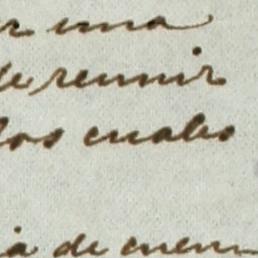 r una
de reunir
los cuales
ia de cuen